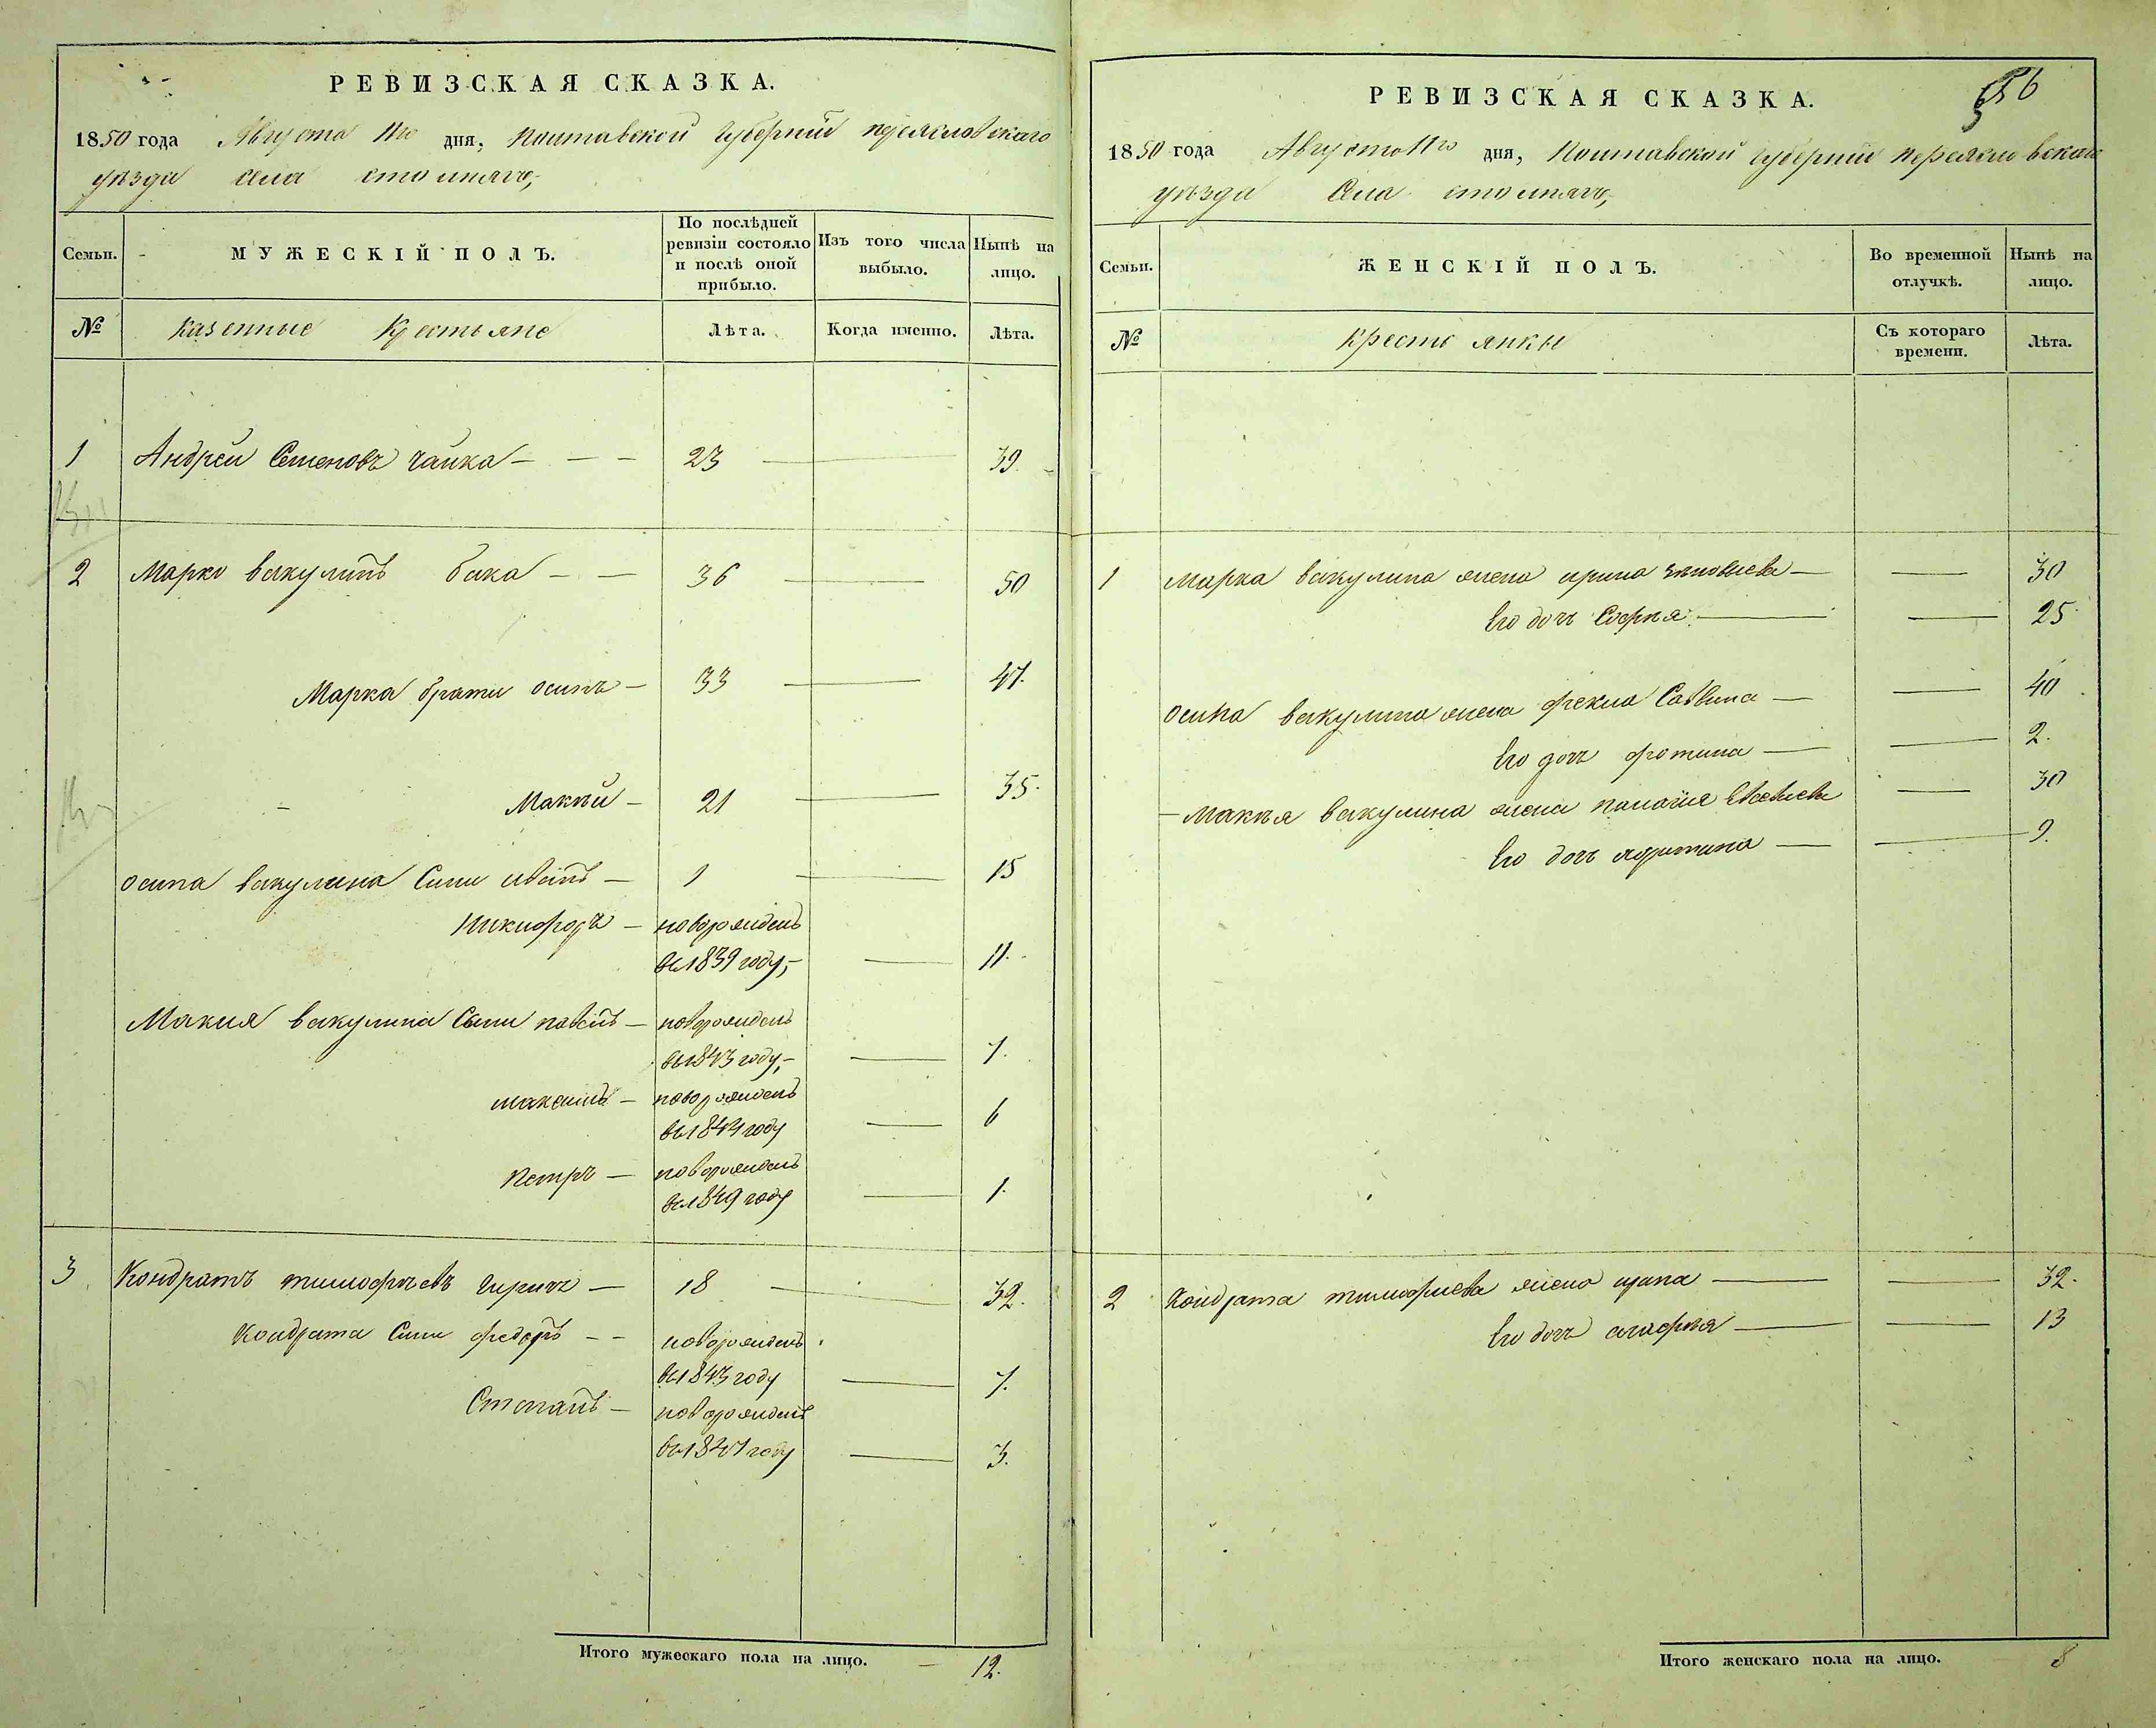 РЕВИЗСКАЯ СКАЗКА.
1850 года Августа 11го дня, Полтавской Губернии переяславского
уезда села столпягъ,
Семьи. МУЖЕСКІЙ ПОЛЪ. По послѣдней ревизіи состояло и послѣ оной прибыло. Изъ того числа выбыло. Нынѣ на лицо.
№ казенные Крестьяне Лѣта. Когда именно. Лѣта.
1 Андрей Семеновъ чайка 23 39
2 Марко вакулинъ бака 36 50
Марка братъ осипъ 33 47.
Макей 21 35.
осипа вакулина Сыни иванъ 1 15
Никифоръ новорожденъ
въ 1839 году, 11.
Макия вакулина Сыни павелъ новорожденъ
въ 1843 году, 7.
максимъ новорожденъ
въ 1844 году 6
Петръ новорожденъ
въ 1849 году 1.
3 Кондратъ тимофѣевъ 18 32.
Кондрата Сыни федоръ новорожденъ
въ 1843 году 7.
Степанъ новорожденъ
въ 1847 году 3.
Итого мужескаго пола на лицо. 12.
РЕВИЗСКАЯ СКАЗКА.
56
1850 года Августа 11го дня, Полтавской Губернии переяславского
уезда Села столпягъ,
Семьи. ЖЕНСКІЙ ПОЛЪ. Во временной отлучкѣ. Нынѣ на лицо.
№ крестьянки Съ котораго времени. Лѣта.
1 Марка вакулина жена ирина зиновиева 30
Его дочь София 25
осипа вакулина жена фекла Савина 40
Его дочь фотина 2.
Макея вакулина жена палагия Евсевиева 30
Его дочь 9.
2 Кондрата тимофиева жена ирина 32.
Его дочь агафия 13
Итого женскаго пола на лицо. 8